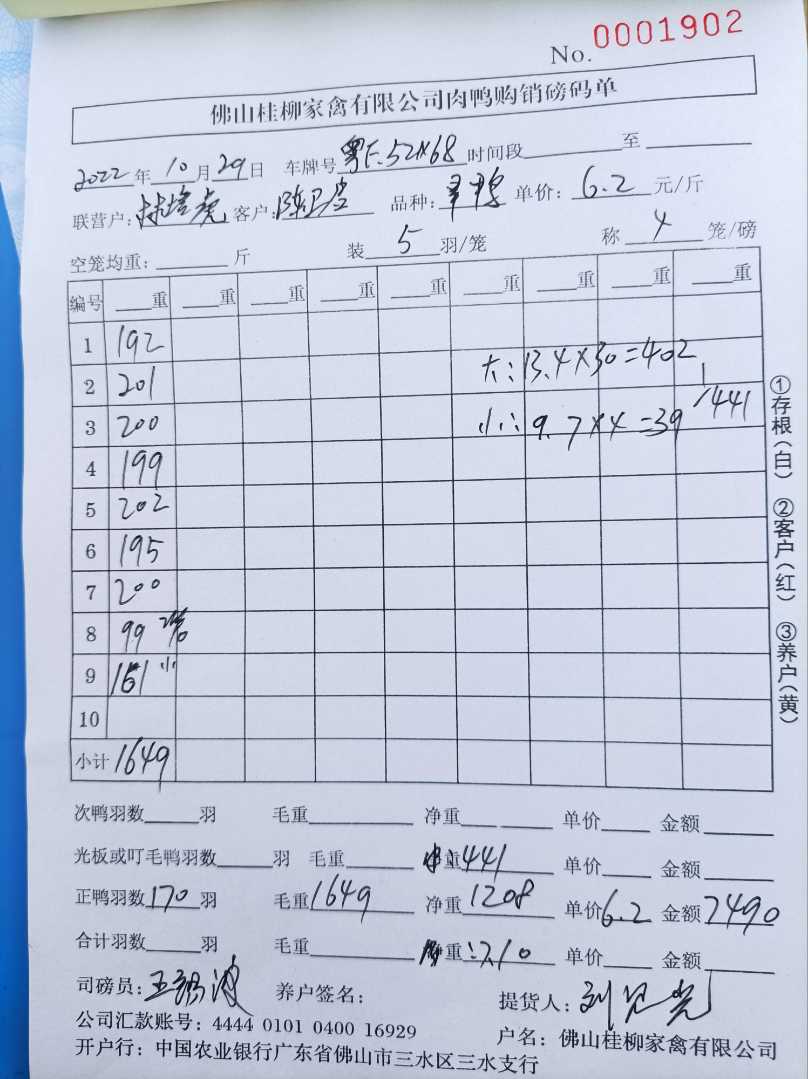 No. 0001902
佛山桂柳家禽有限公司肉鸭购销磅码单
2022年10月29日 车牌号粤F.52X68 时间段 至
联营户: 客户:陈卫 品种: 单价:6.2元/斤
空笼均重: 斤 装5羽/笼 称4笼/磅
编号 重 重 重 重 重 重 重 重 重
1 192
2 201 大:13.4×30=402
3 200 小:9.7×4=39 441
4 199
5 202
6 195
7 200
8 99 2笼
9 161 小
10
小计 1649
次鸭羽数 羽 毛重 净重 单价 金额
光板或叮毛鸭羽数 羽 毛重 重441 单价 金额
正鸭羽数170羽 毛重1649 净重1208 单价6.2 金额7490
合计羽数 羽 毛重 重:7.10 单价 金额
司磅员:王 波 养户签名: 提货人:刘 光
公司汇款账号:4444 0101 0400 16929 户名:佛山桂柳家禽有限公司
开户行:中国农业银行广东省佛山市三水区三水支行
①存根(白) ②客户(红) ③养户(黄)